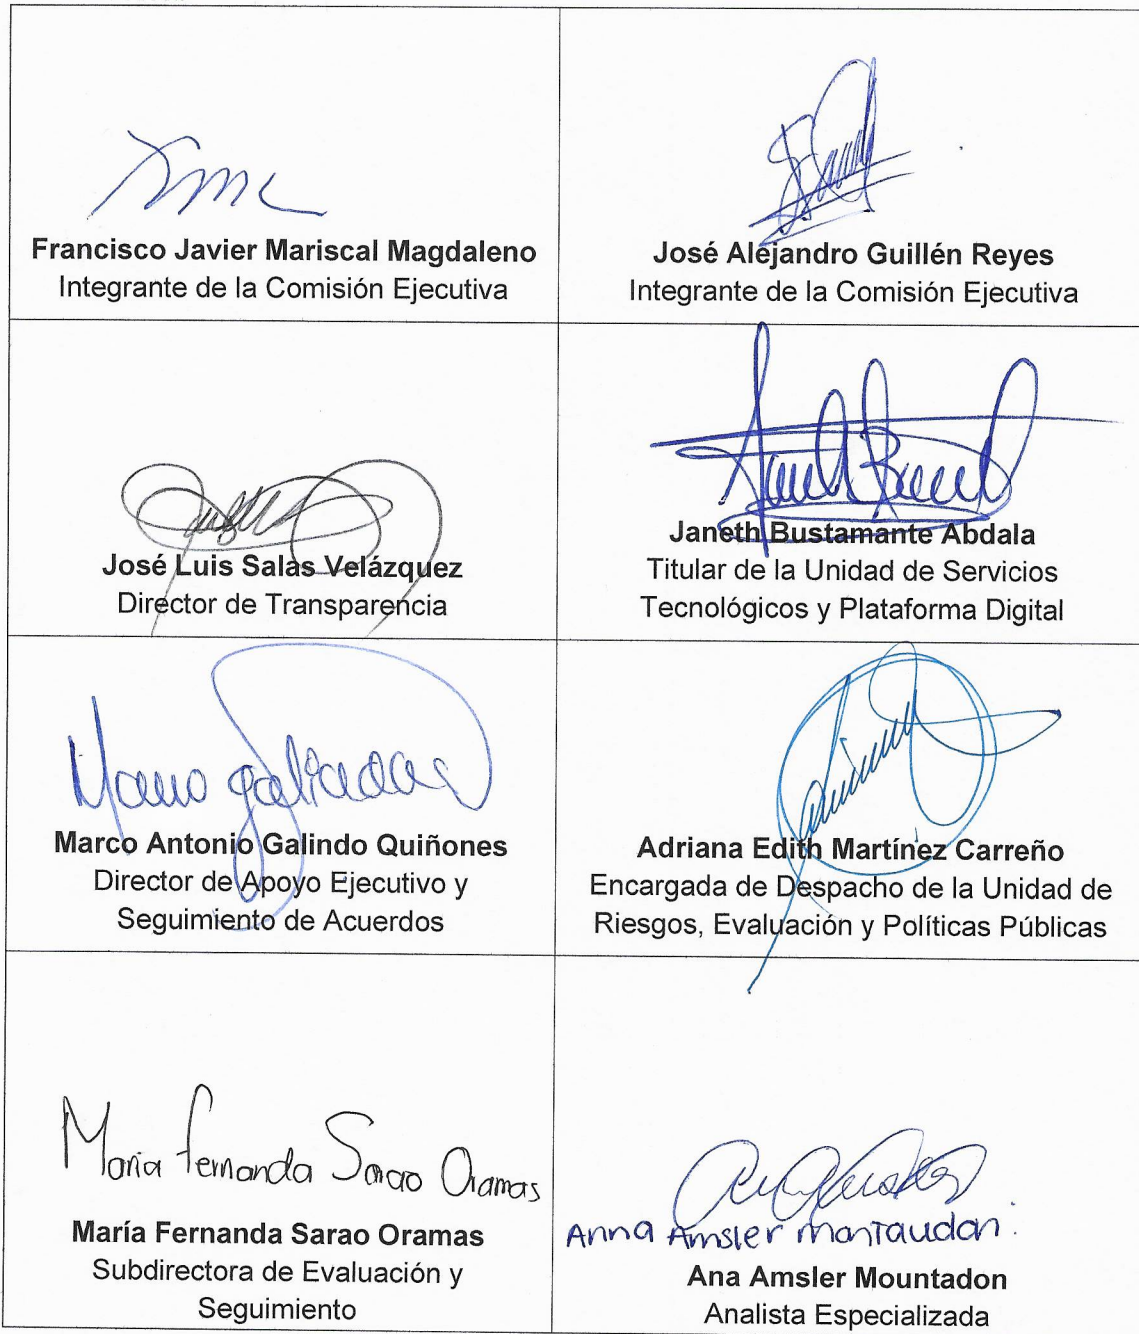 Francisco Javier Mariscal Magdaleno
Integrante de la Comisión Ejecutiva
José Alejandro Guillén Reyes
Integrante de la Comisión Ejecutiva
José Luis Salas Velázquez
Director de Transparencia
Janeth Bustamante Abdala
Titular de la Unidad de Servicios
Tecnológicos y Plataforma Digital
Marco Antonio Galindo Quiñones
Director de Apoyo Ejecutivo y
Seguimiento de Acuerdos
Adriana Edith Martínez Carreño
Encargada de Despacho de la Unidad de
Riesgos, Evaluación y Políticas Públicas
María Fernanda Sarao Oramas
María Fernanda Sarao Oramas
Subdirectora de Evaluación y
Seguimiento
Anna Amsler Montaudon.
Ana Amsler Mountadon
Analista Especializada